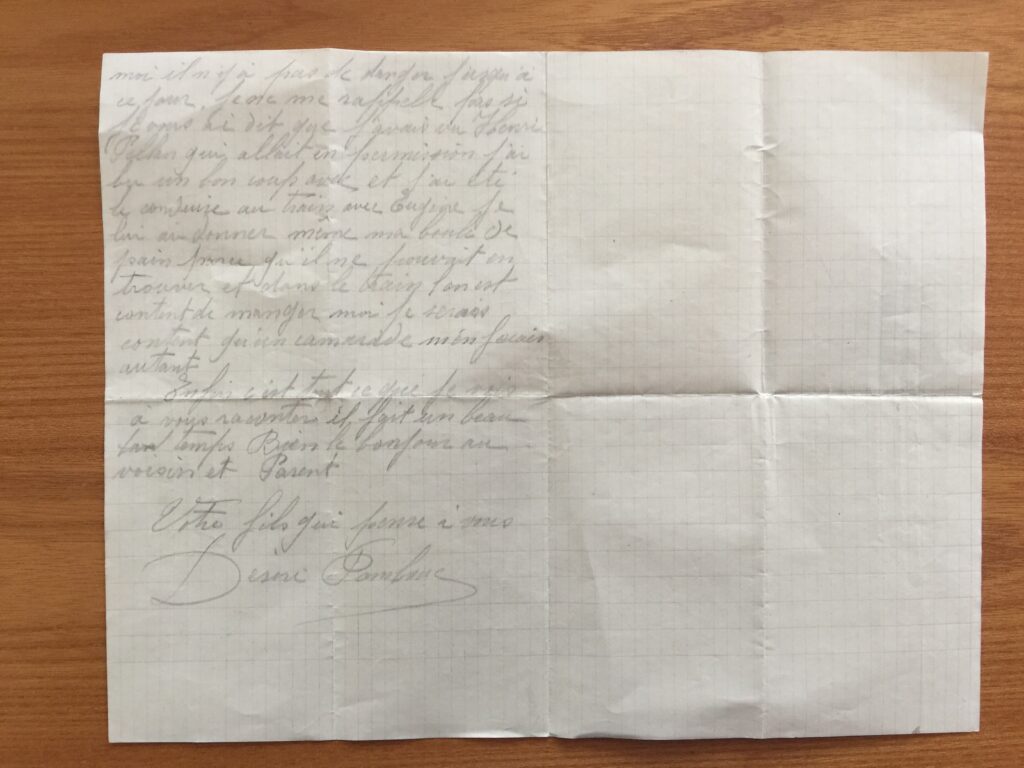 moi il n'y à pas de danger jusqu'à
ce jour. je ne me rappele pas si
je vous ai dit que j'avais vu Henri
qui allait en permission j'ai
bu un bon coup avec et j'ai été
le conduire au train avec Eugène je
lui ai donner même ma boule de
pain parce qu'il ne pouvait en
trouver et dans le train l'on est
content de manger moi je serais
content qu'un camarade m'en fasse
autant
Enfin c'est tout ce que je vois
à vous raconter il fait un beau
temps Bien le bonjour au
voisin et Parent
Votre fils qui pense à vous
Désiré